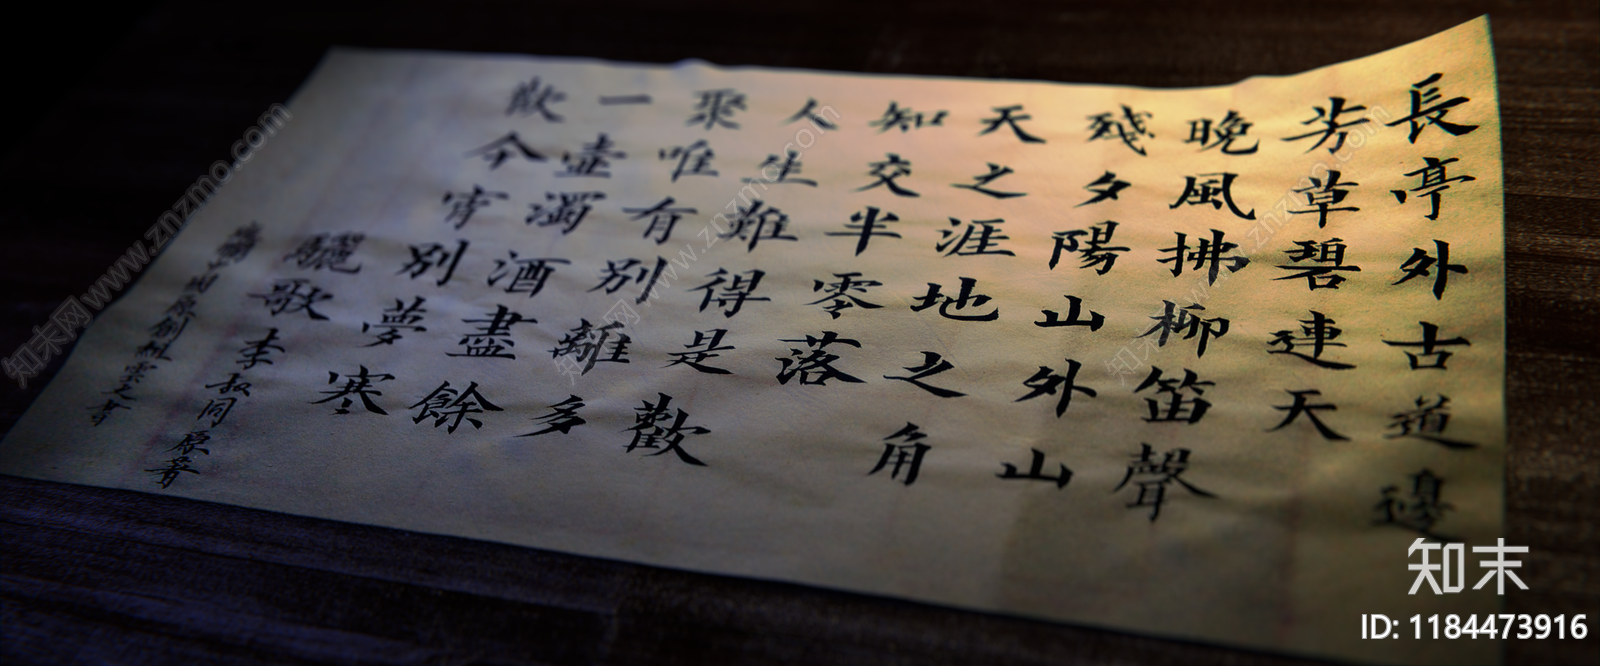 長亭外古道邊
芳草碧連天
晚風拂柳笛聲
殘夕陽山外山
天之涯地之角
知交半零落
人生難得是歡
聚唯有別離多
一壺濁酒盡餘
歡今宵別夢寒
驪歌 李叔同 原著
原創組雲之書
知末网www.znzmo.com
知末
ID: 1184473916